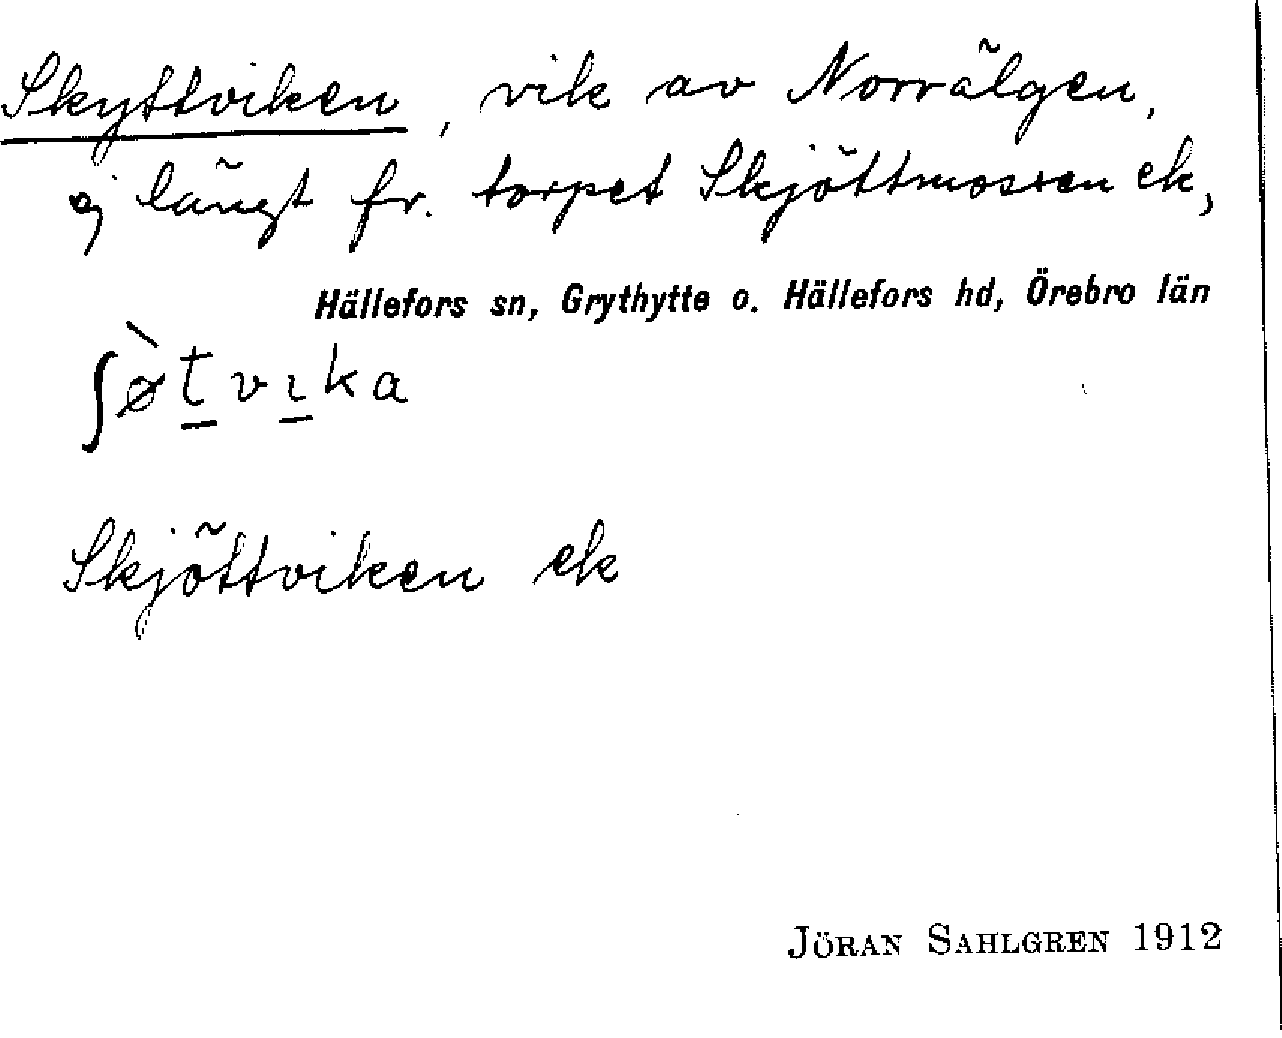 Skyttviken, vik av Norrälgen,
ej långt fr. torpet Skjöttmossen ek,
Hällefors sn, Grythytte o. Hällefors hd, Örebro län
ʃø̀t̲vɪ̲ka
Skjöttviken ek
JÖRAN SAHLGREN 1912